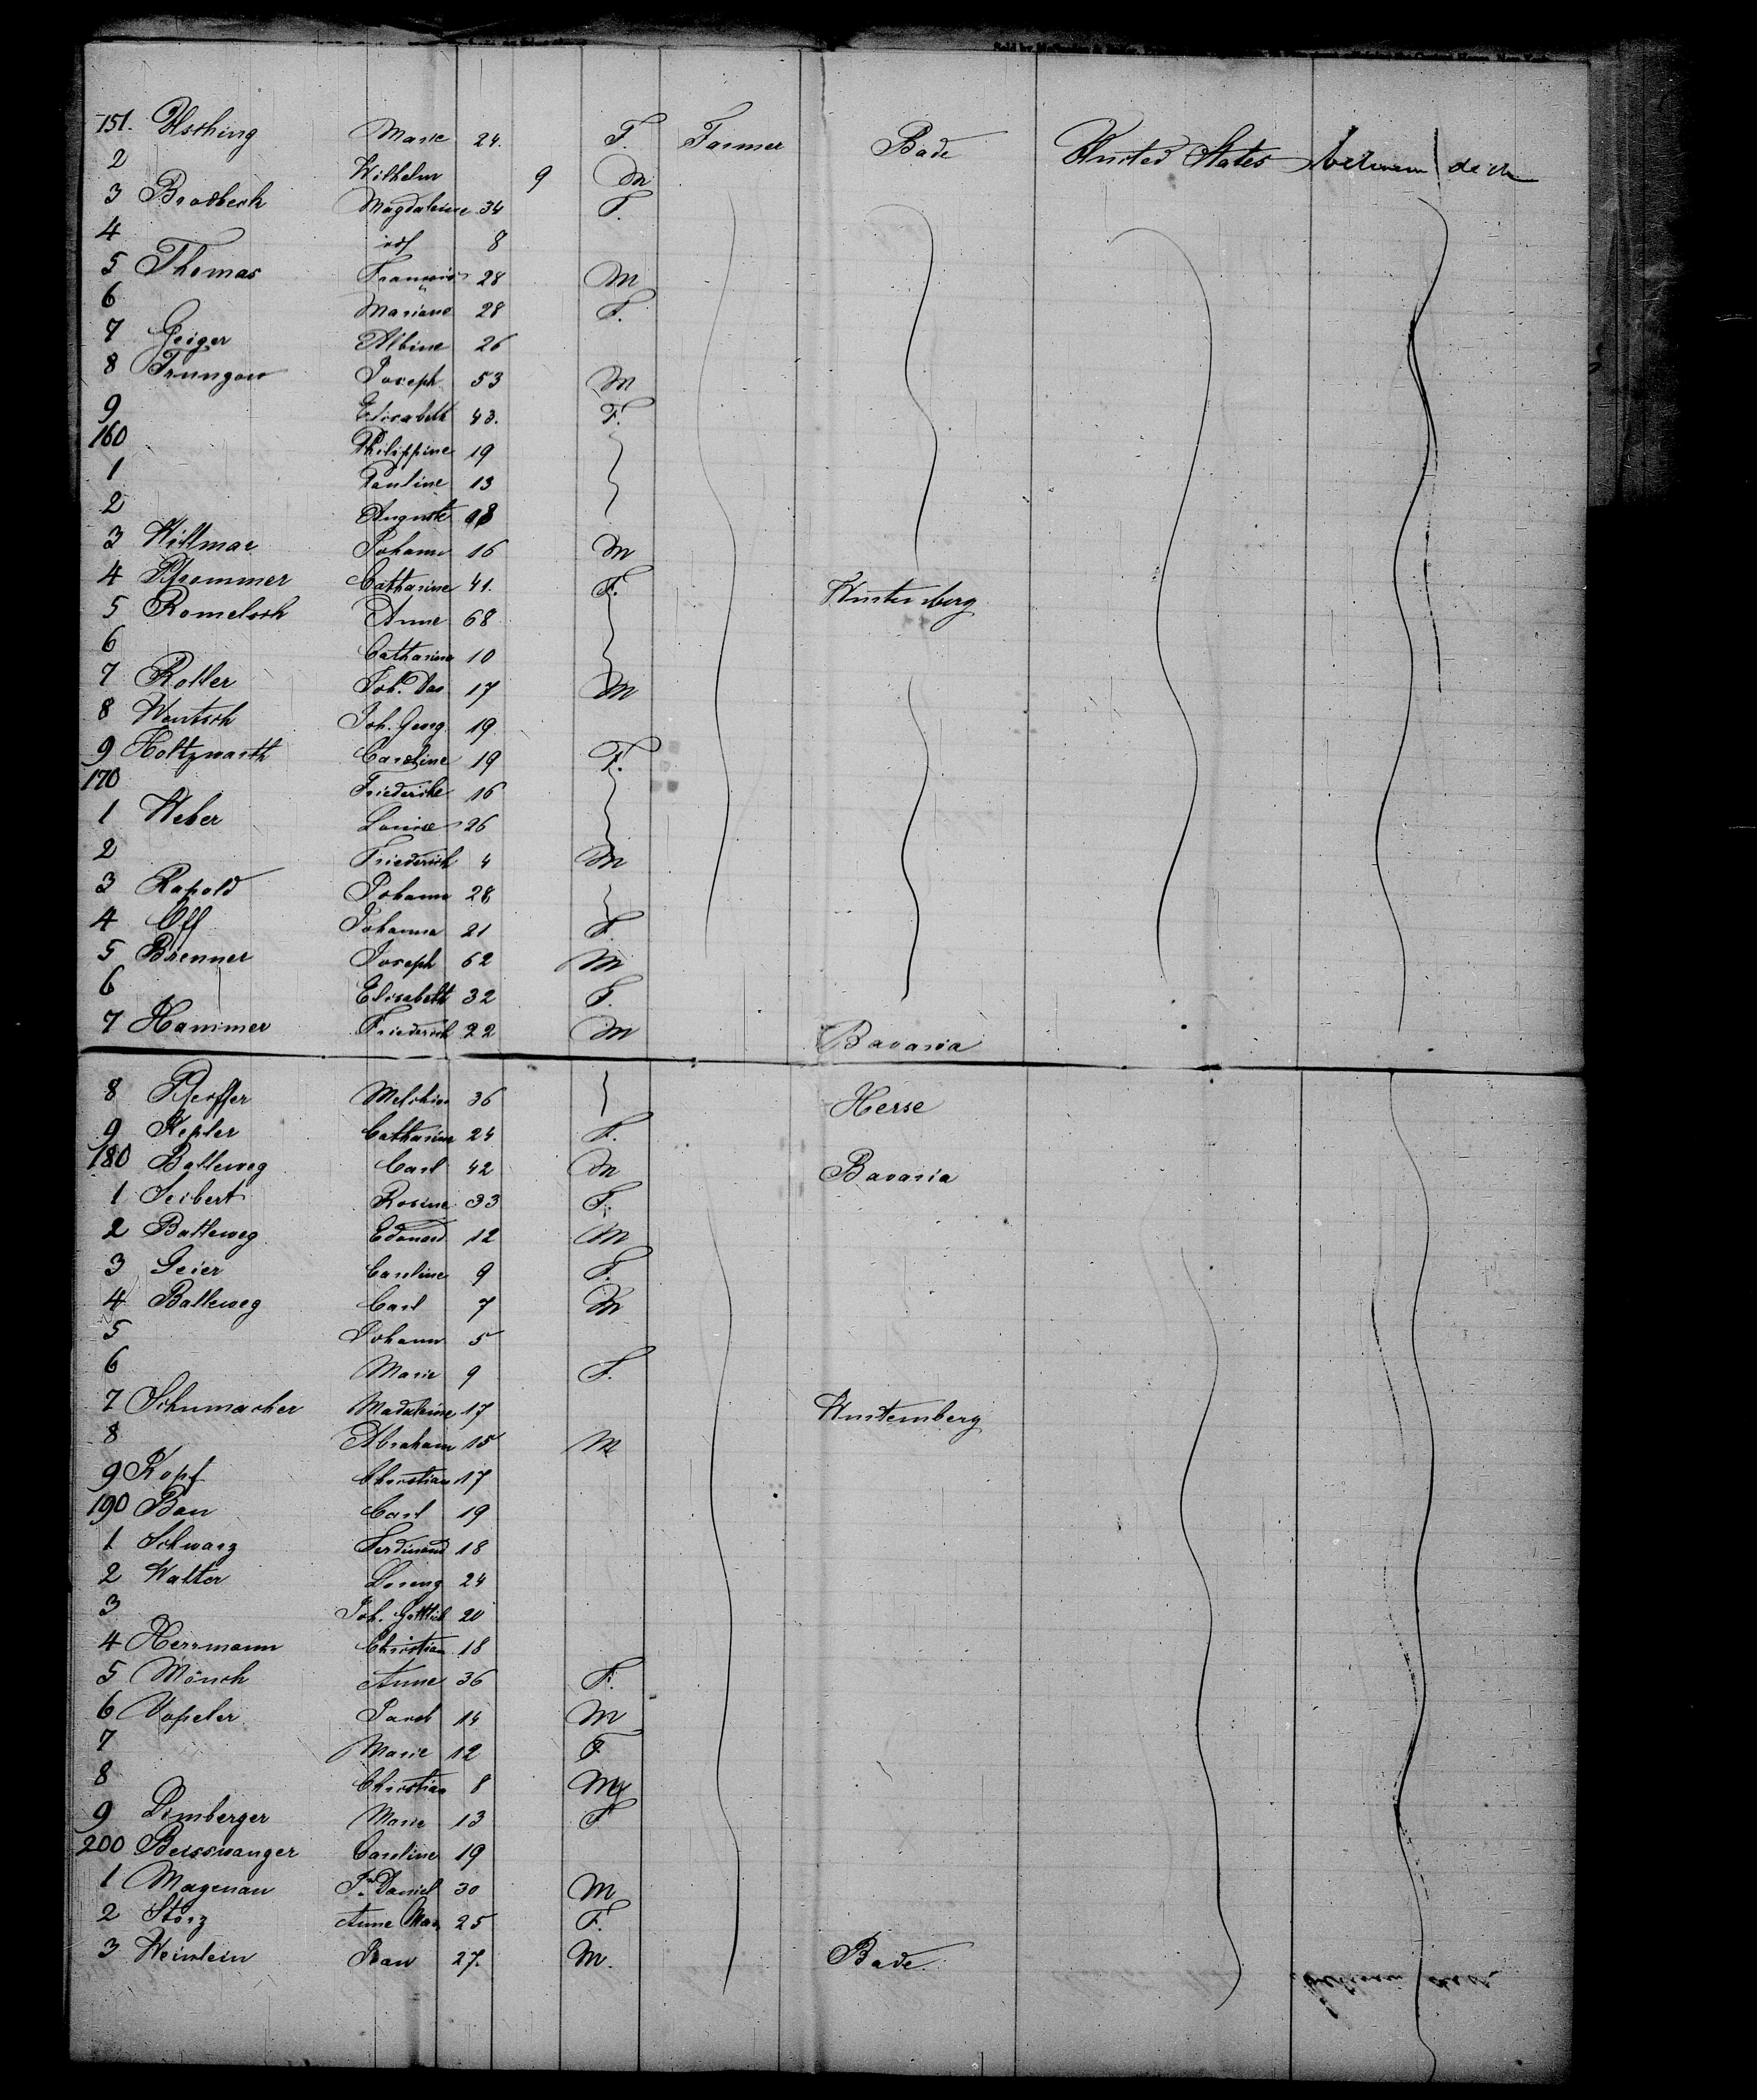 151. Marie 24. F. Farmer Bade United States between deck
2 Wilhelm 9 M
3 Brodbeck Magdaleine 34 F.
4 8
5 Thomas François 28 M
6 Mariane 28 F.
7 Geiger Albine 26
8 Joseph 53 M
9 Elisabeth 43. F.
160 Philippine 19
1 Pauline 13
2 Auguste
3 Willmar Johann 16 M
4 Pfrommer Catharine 41. F. Wurtemberg
5 Anne 68
6 Catharine 10
7 Roller Joh. 17 M
8 Joh. Georg 19
9 Holtzwarth Caroline 19 F.
170 Friederike 16
1 Weber Louise 26
2 Friederich 4 M
3 Rapold Johann 28
4 Off Johanna 21 F
5 Brenner Joseph 62 M
6 Elisabeth 32 F.
7 Hammer Friederich 22 M Bavaria
8 Pfeiffer Melchior 36 Hesse
9 Kepler Catharine 24 F.
180 Balleweg Carl 42 M Bavaria
1 Seibert Rosine 33 F.
2 Balleweg Edouard 12 M
3 Geier Caroline 9 F.
4 Balleweg Carl 7 M
5 Johann 5
6 Marie 9 F.
7 Schumacher Madaleine 17 Wurtemberg
8 Abraham 15 M
9 Kopf Christian 17
190 Bau Carl 19
1 Schwarz Ferdinand 18
2 Walter Lorenz 24
3 Joh. Gottlieb 20
4 Herrmann Christian 18
5 Mönch Anne 36 F.
6 Vopeler Jacob 14 M
7 Marie 12 F
8 Christian 8 M
9 Marie 13 F
200 Beisswanger Caroline 19
1 Magenau Daniel 30 M
2 Störz Anne Mar. 25 F.
3 Weinlein 27. M. Bade